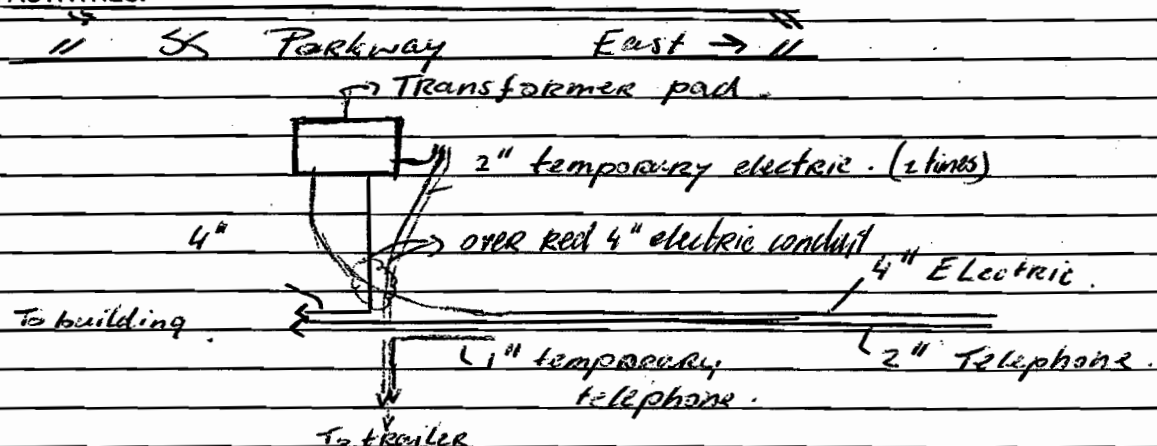 Parkway East →
Transformer pad.
2" temporary electric. (2 lines)
4"
over red 4" electric conduit
4" Electric.
To building.
1" temporary
telephone.
2" Telephone.
To trailer